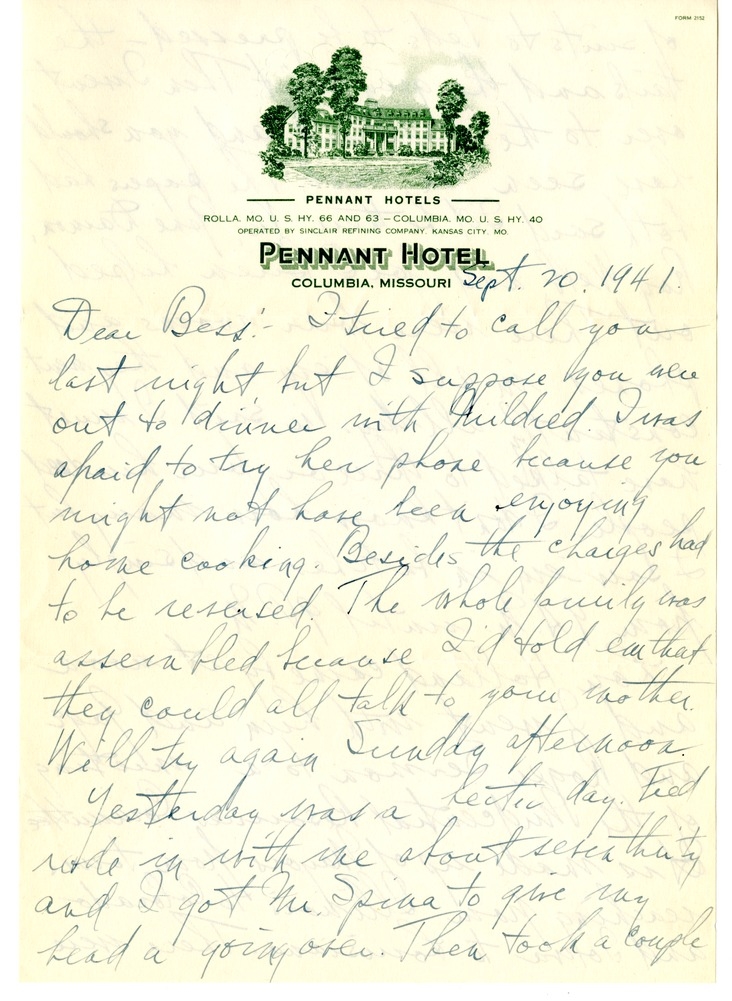 FORM 2152
PENNANT HOTELS
ROLLA, MO. U. S. HY. 66 AND 63 – COLUMBIA, MO. U. S. HY. 40
OPERATED BY SINCLAIR REFINING COMPANY, KANSAS CITY, MO.
PENNANT HOTEL
COLUMBIA, MISSOURI
Sept. 20, 1941.
Dear Bess:- I tried to call you
last night but I suppose you were
out to dinner with Mildred. I was
afraid to try her phone because you
might not have been enjoying
home cooking. Besides the charges had
to be reversed. The whole family was
assembled because I'd told em that
they could all talk to your mother.
We'll try again Sunday afternoon.
Yesterday was a hectic day. Fred
rode in with me about seven thirty
and I got Mr. Spina to give my
head a going over. Then took a couple